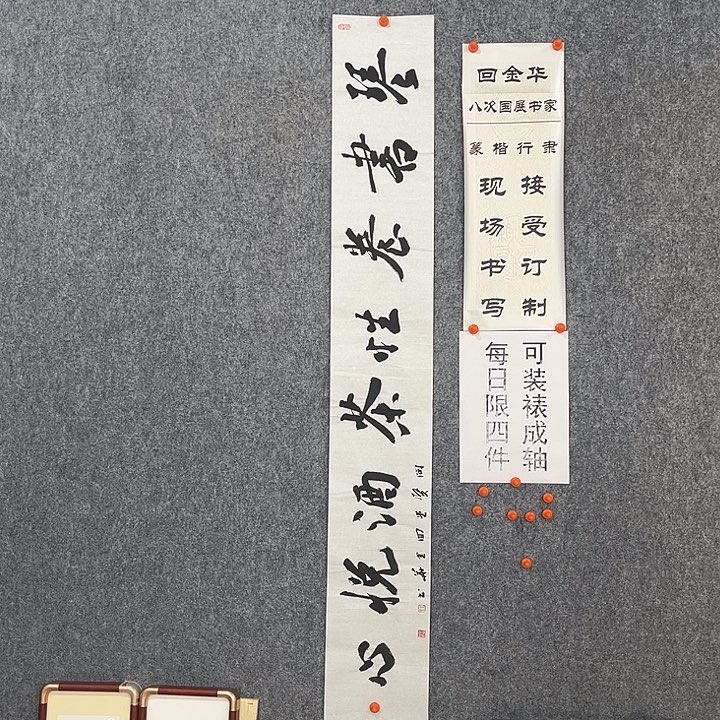 琴書養性茶酒悦心
回金华
八次国展书家
篆楷行隶
接受订制
现场书写
可装裱成轴
每日限四件